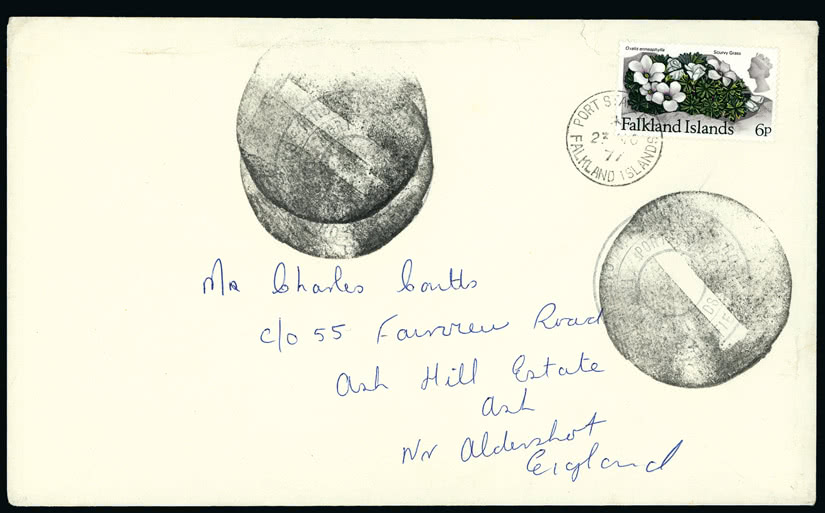 Oxalis enneaphylla
Scurvy Grass
Falkland Islands 6p
PORT
FALKLAND ISLANDS
77
Mr Charles Coutts
c/o 55 Fairview Road
Ash Hill Estate
Ash
Nr Aldershot
England
PORT